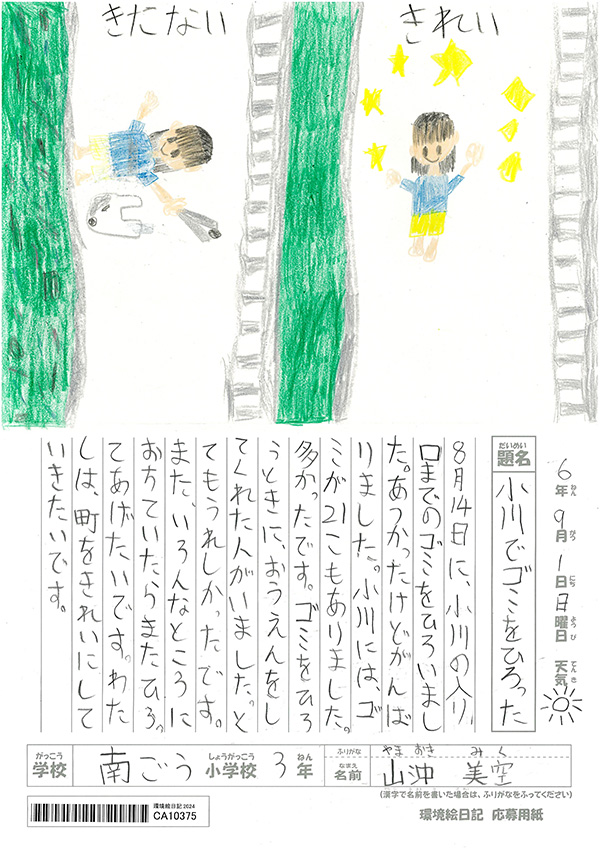 きたない
きれい
6年9月1日日曜日 天気
ねん がつ にち ようび てんき
だいめい
題名
小川でゴミをひろった
8月14日に、小川の入り
口までのゴミをひろいまし
た。あつかったけどがんば
りました。小川には、ゴ
ミが21こもありました。
多かったです。ゴミをひろ
うときに、おうえんをし
てくれた人がいました。と
てもうれしかったです。
また、いろんなところに
おちていたらまたひろっ
てあげたいです。わた
しは、町をきれいにして
いきたいです。
がっこう しょうがっこう ねん
学校 南ごう 小学校 3年
ふりがな やまおき みく
なまえ
名前 山沖 美空
(漢字で名前を書いた場合は、ふりがなをふってください)
環境絵日記 2024
CA10375
環境絵日記 応募用紙